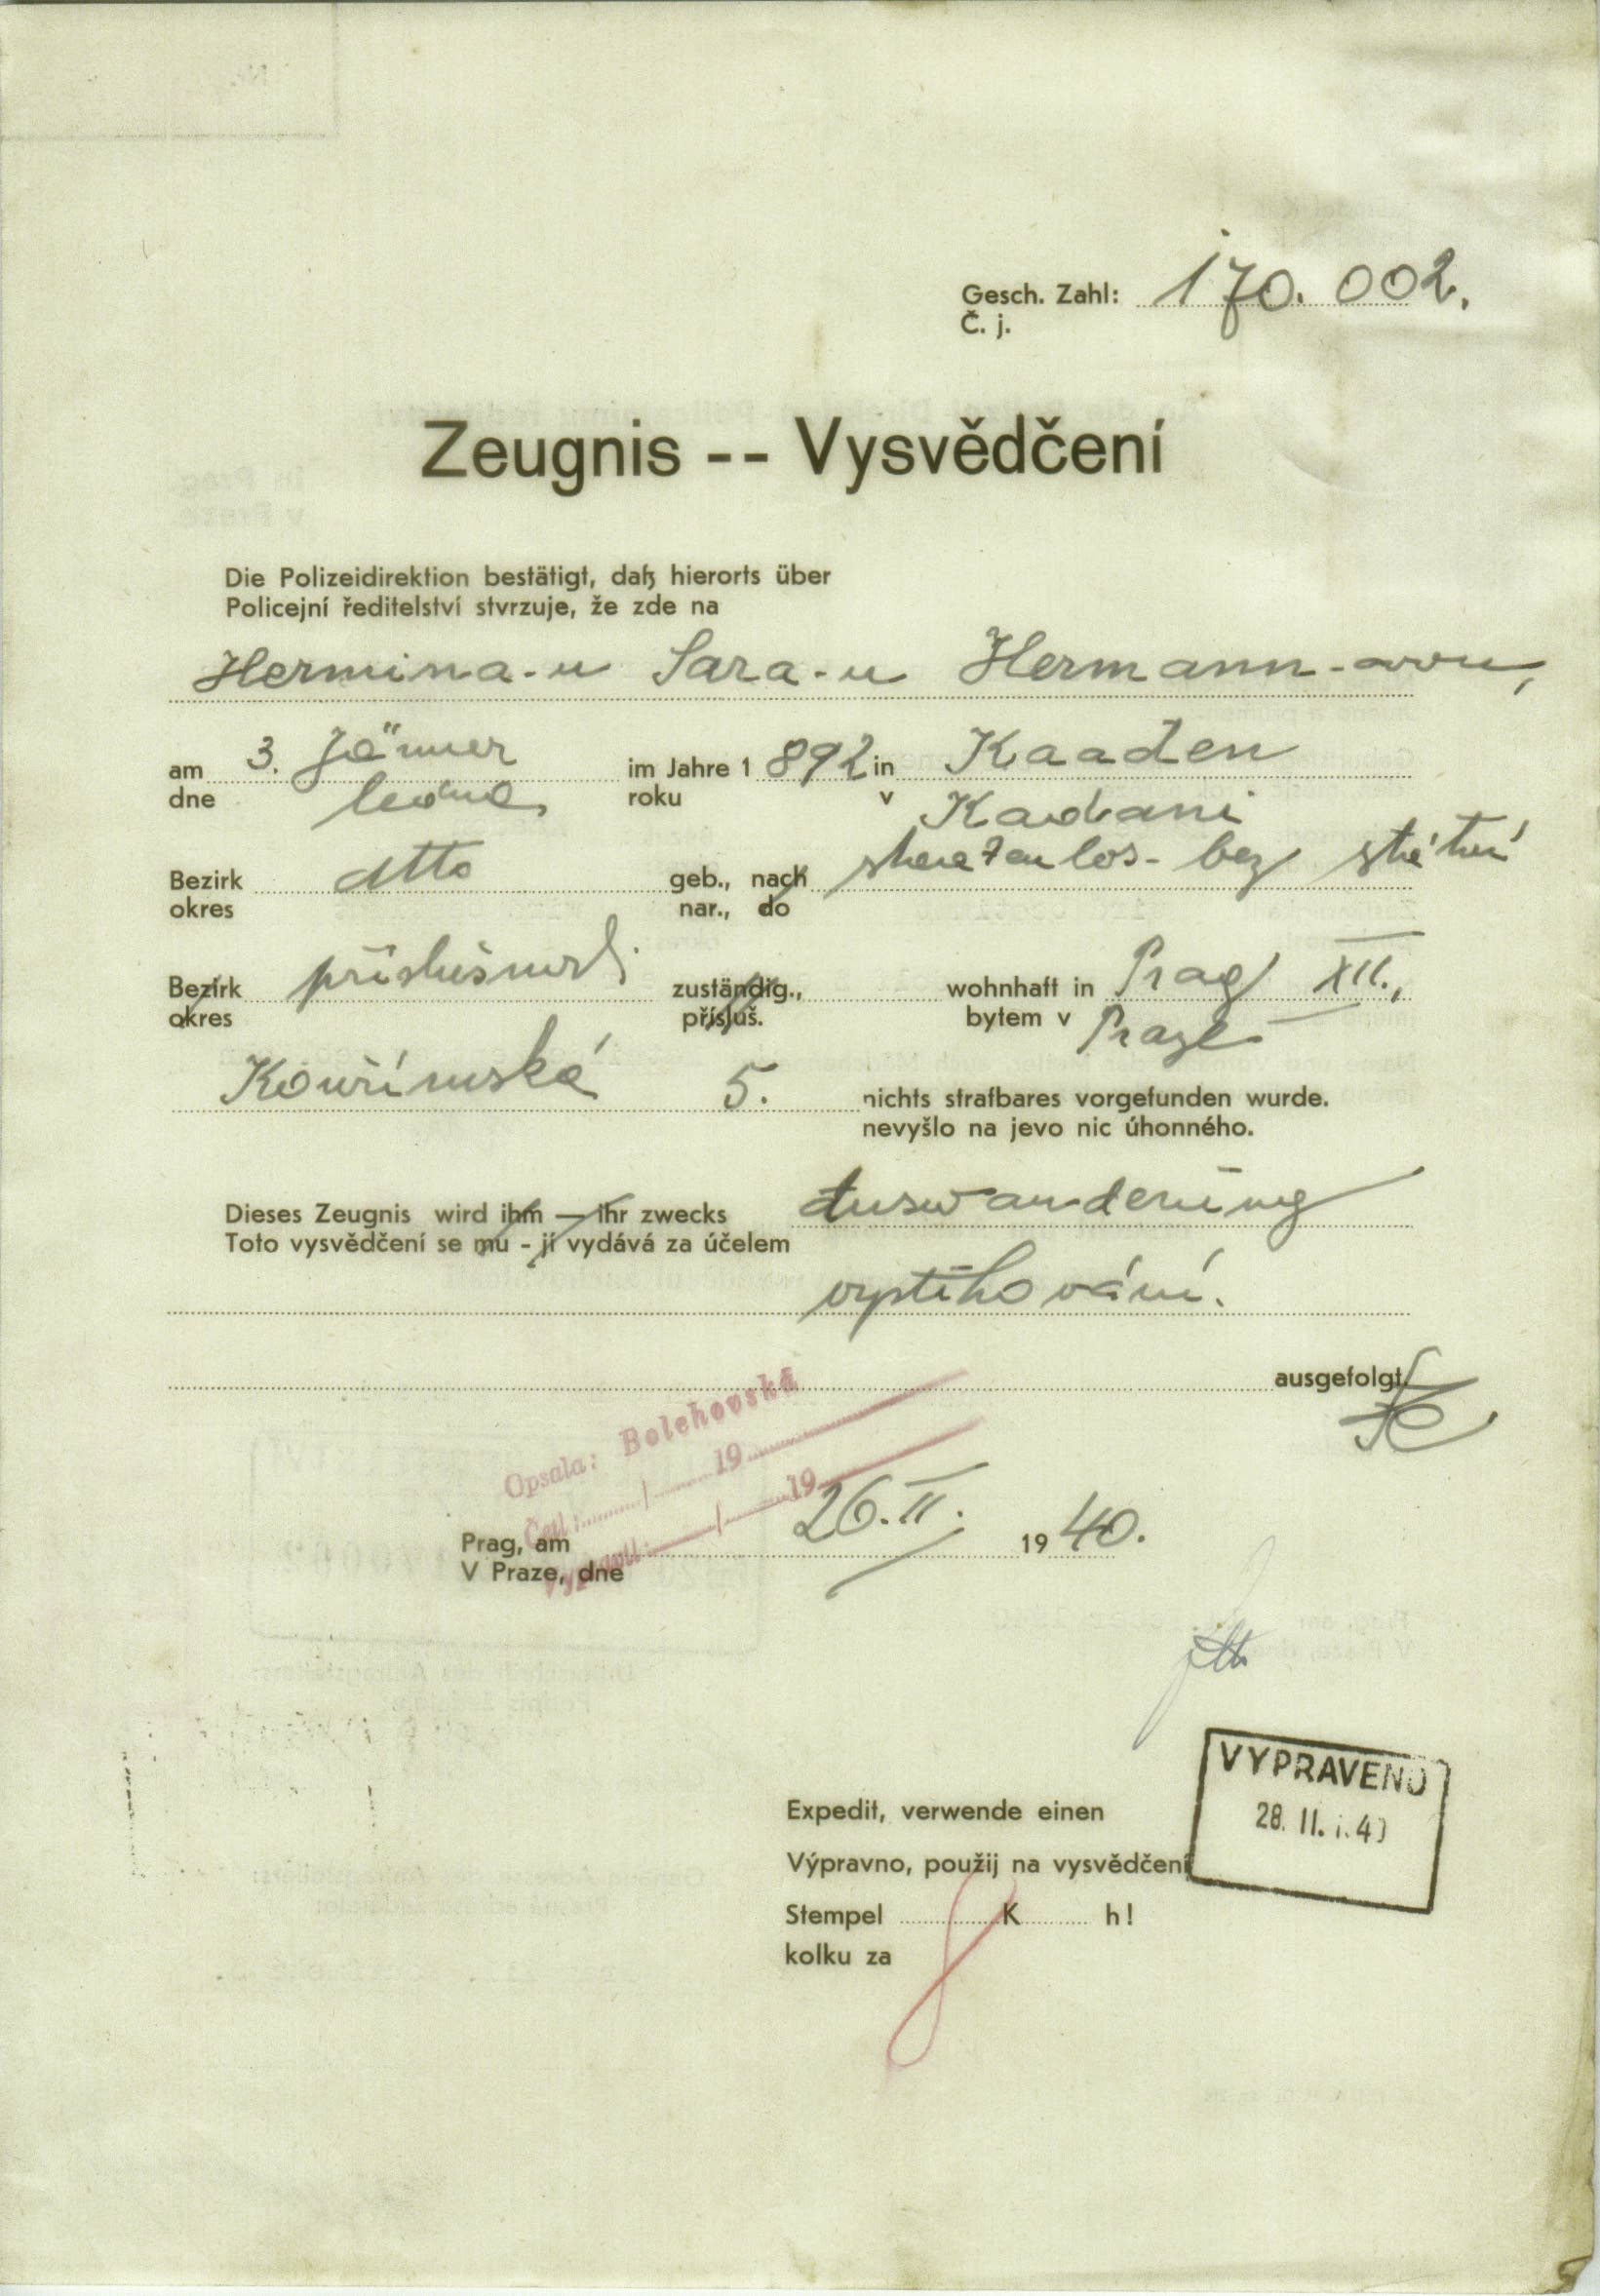 Gesch. Zahl: 170.002.
Č. j.
Zeugnis -- Vysvědčení
Die Polizeidirektion bestätigt, daß hierorts über
Policejní ředitelství stvrzuje, že zde na
Hermina-u Sara-u Hermann-ovou,
am 3. Jänner im Jahre 1 892 in Kaaden
dne ledna roku v Kadani
Bezirk dtto geb., nach staatenlos - bez státní
okres nar., do
Bezirk příslušnosti zuständig., wohnhaft in Prag XII.,
okres přísluš. bytem v Praze
Kouřimská 5. nichts strafbares vorgefunden wurde.
nevyšlo na jevo nic úhonného.
Dieses Zeugnis wird ihm — ihr zwecks Auswanderung
Toto vysvědčení se mu - jí vydává za účelem
vystěhování.
ausgefolgt
Opsala: Bolehovská
Četl: / 19
Vypravil: / 19
Prag, am 26. II. 19 40.
V Praze, dne
VYPRAVENO
28. II. 1.40
Expedit, verwende einen
Výpravno, použij na vysvědčení
Stempel K h!
kolku za